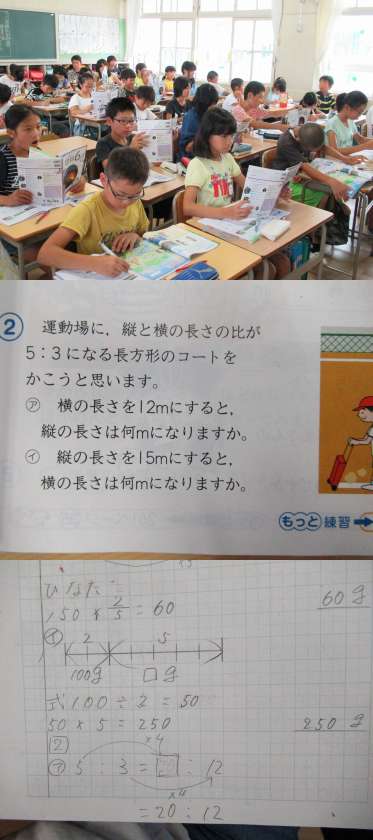 2 運動場に,縦と横の長さの比が
5:3になる長方形のコートを
かこうと思います。
㋐ 横の長さを12mにすると,
縦の長さは何mになりますか。
㋑ 縦の長さを15mにすると,
横の長さは何mになりますか。
もっと練習
ひなた
150 × 2/5 = 60
60g
㋑
2 5
100g □g
式 100 ÷ 2 = 50
50 × 5 = 250
250g
2
×4
㋐ 5 : 3 = 20 : 12
×4
= 20 : 12